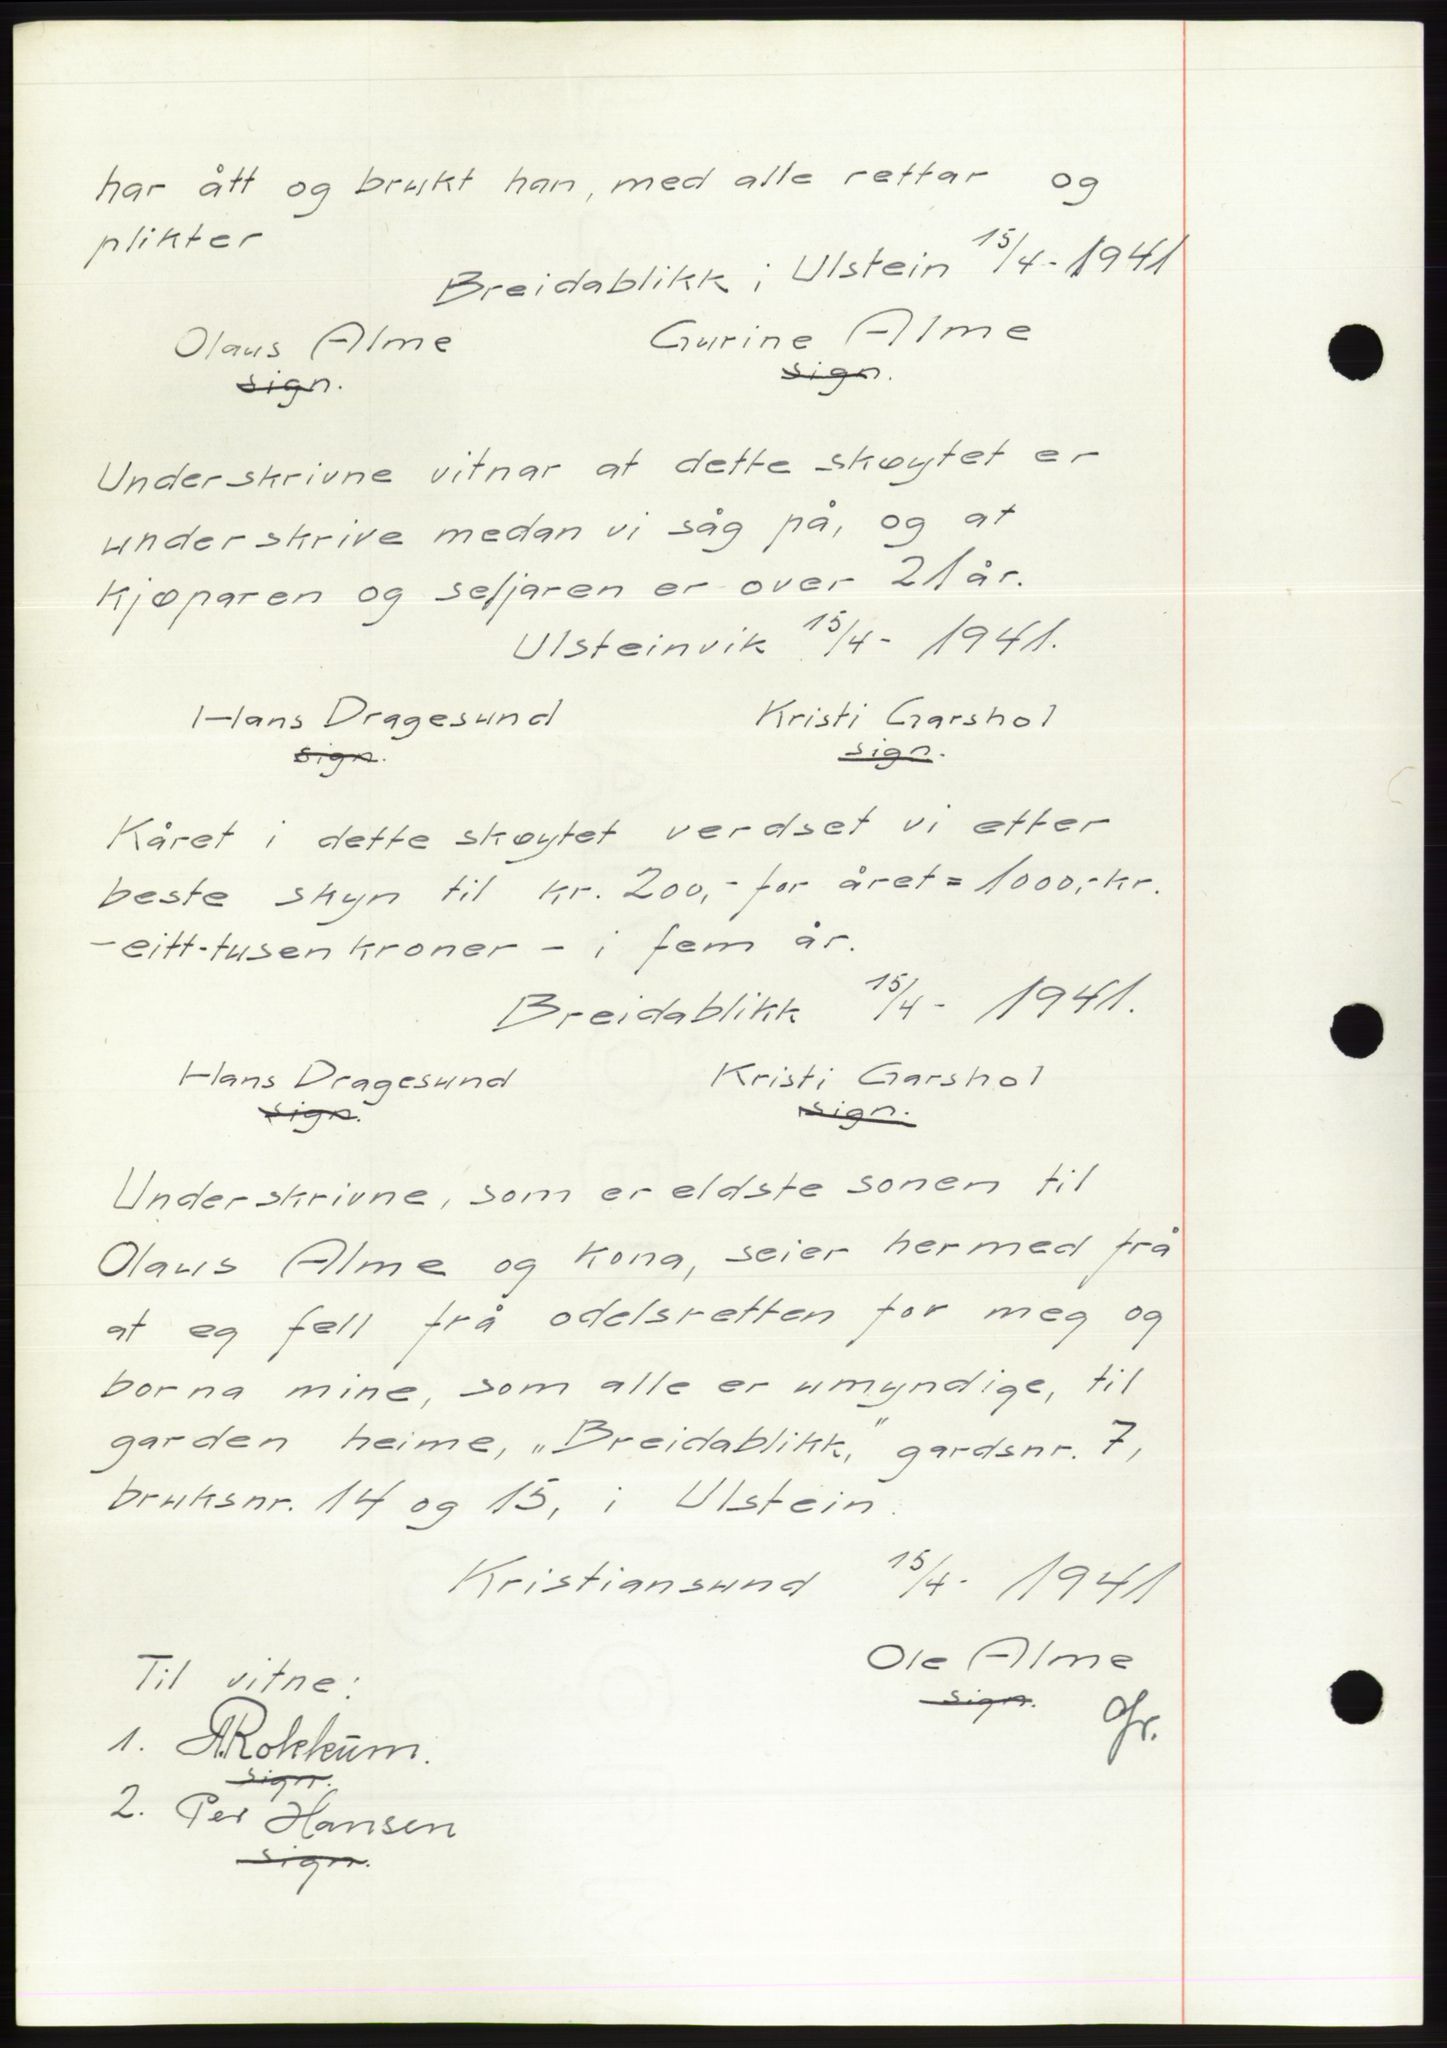 har ått og brukt han, med alle rettar og
plikter
Breidablikk i Ulstein 15/4-1941
Olaus Alme Gurine Alme
sign. sign.
Underskrivne vitnar at dette skøytet er
underskrive medan vi såg på, og at
kjøparen og seljaren er over 21 år.
Ulsteinvik 15/4- 1941.
Hans Dragesund Kristi Garshol
sign. sign.
Kåret i dette skøytet verdset vi etter
beste skyn til kr. 200,- for året = 1000,-kr.
-eitt-tusen kroner - i fem år.
Breidablikk 15/4- 1941.
Hans Dragesund Kristi Garshol
sign. sign.
Underskrivne, som er eldste sonen til
Olaus Alme og kona, seier hermed frå
at eg fell frå odelsretten for meg og
borna mine, som alle er umyndige, til
garden heime, „Breidablikk," gardsnr. 7,
bruksnr. 14 og 15, i Ulstein.
Kristiansund 15/4- 1941
Til vitne: Ole Alme
sign.
1. A.Rokkum.
sign.
2. Per Hansen
sign.